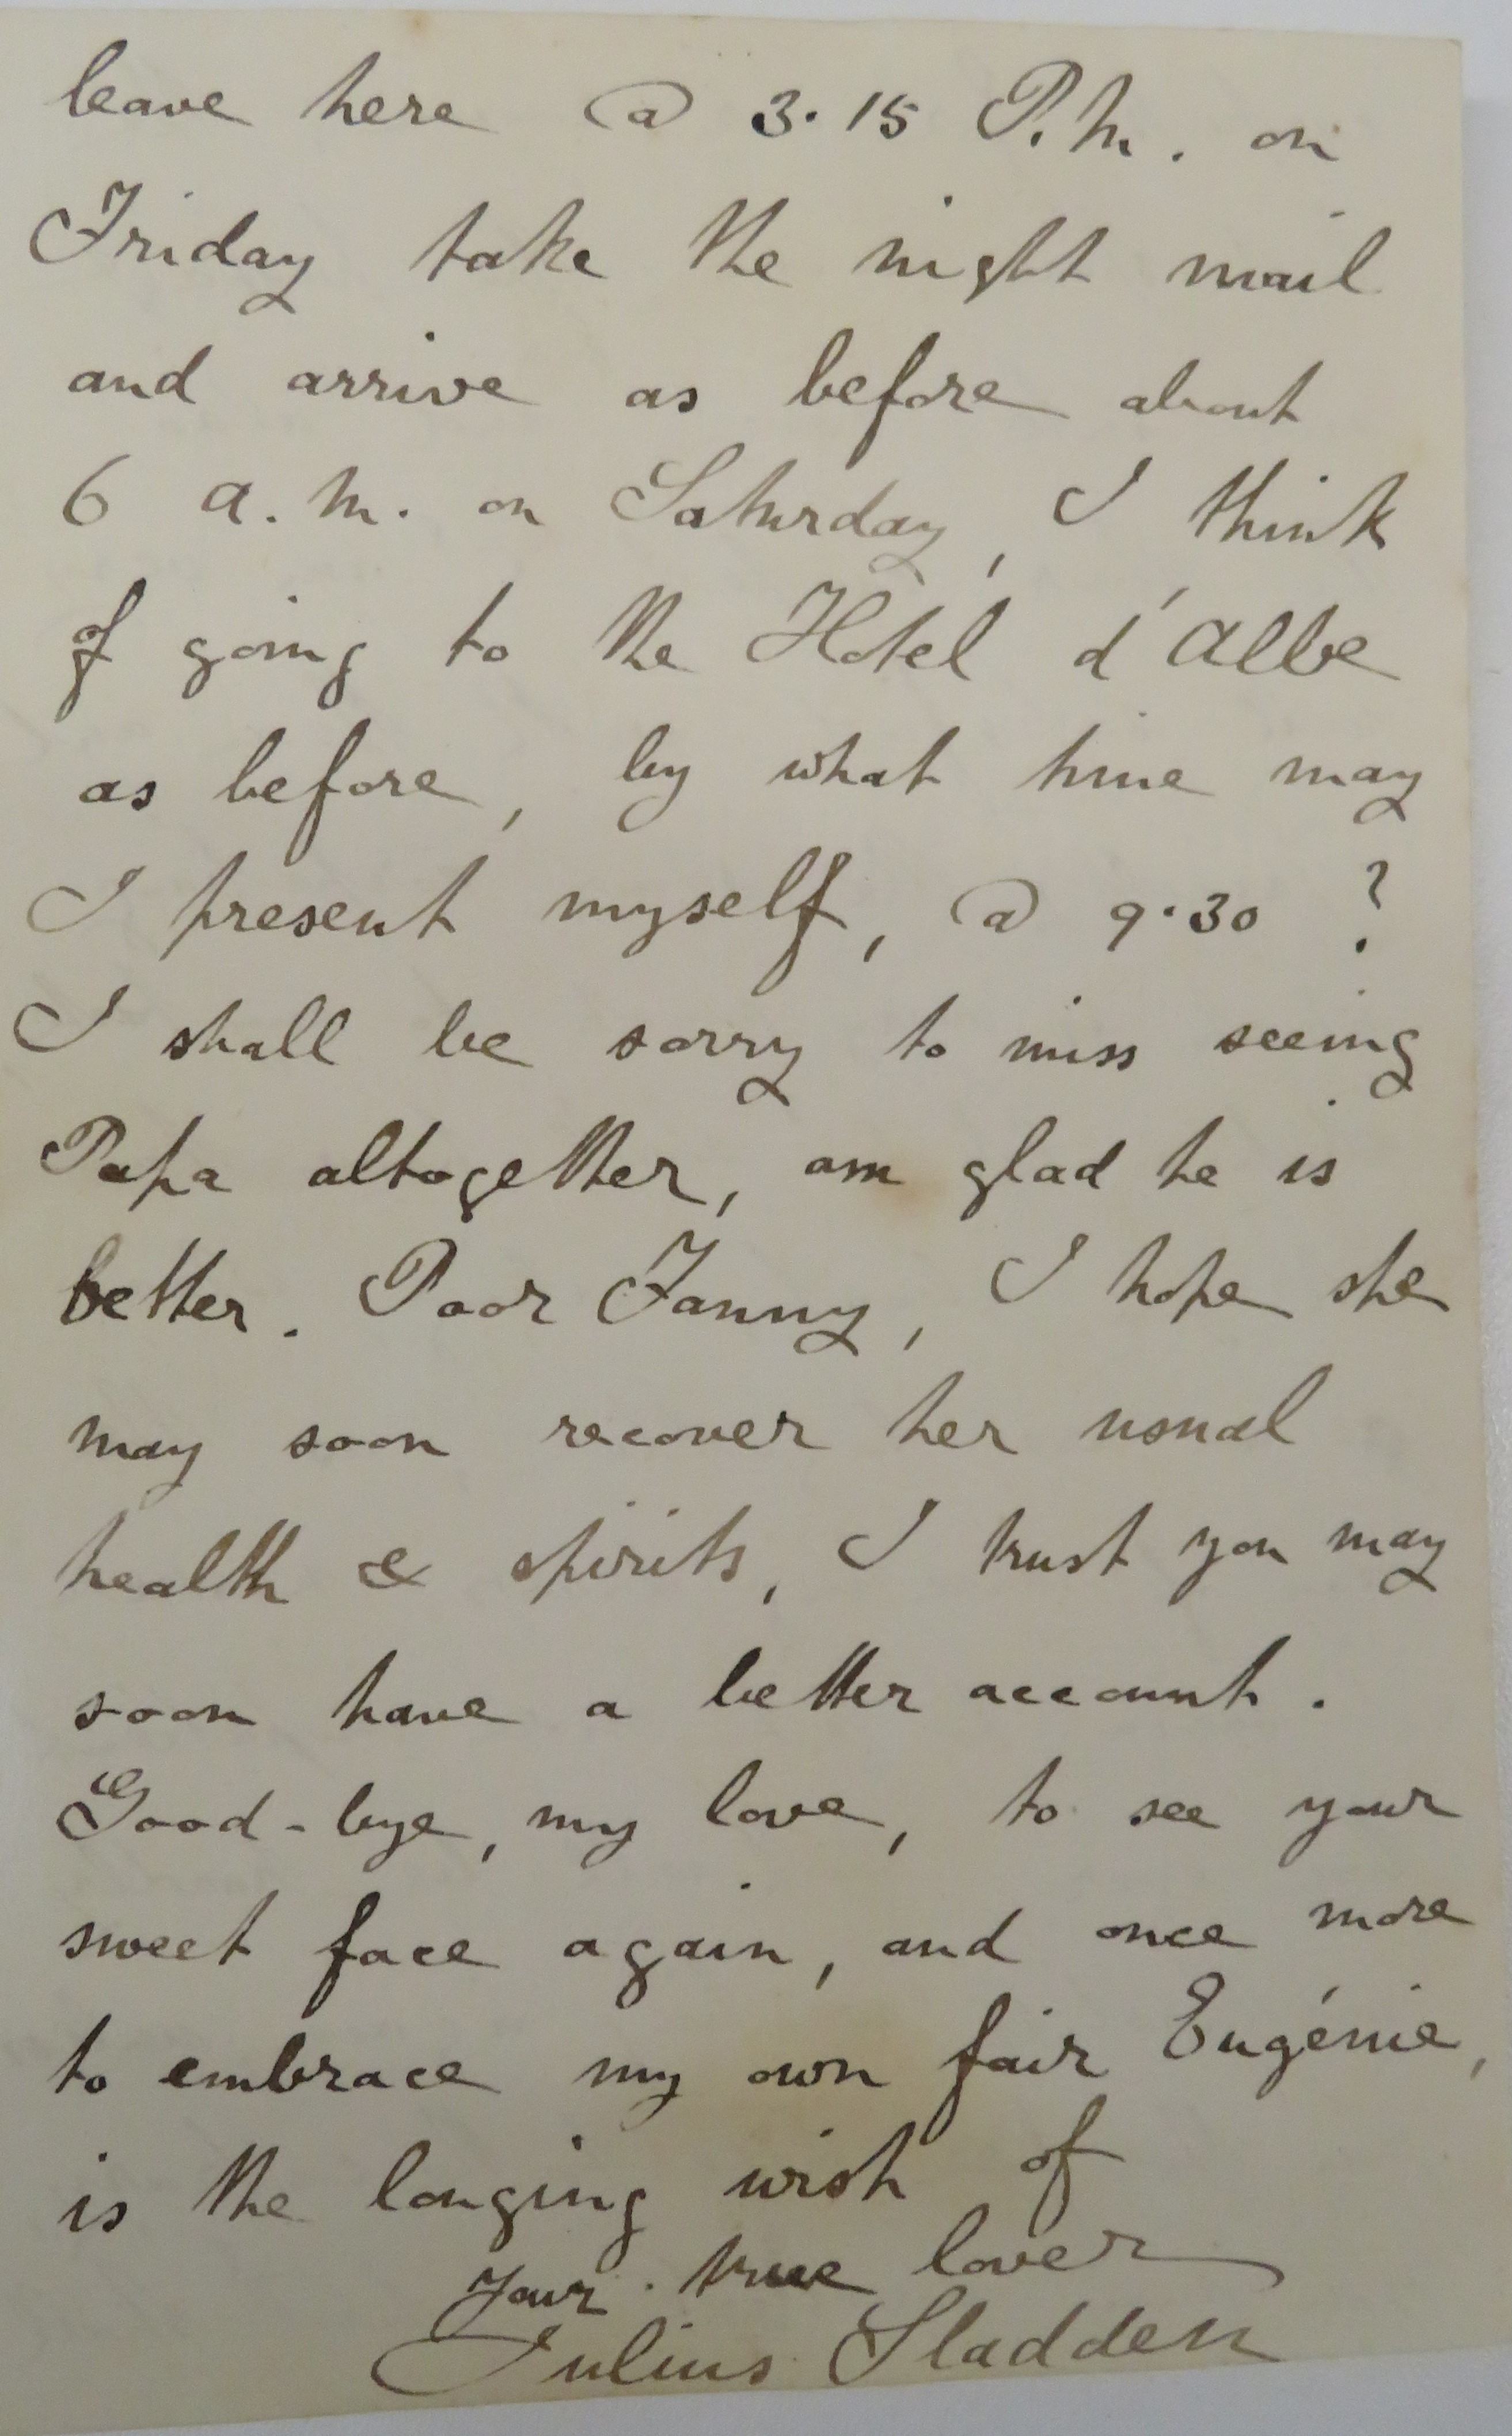 leave here @ 3.15 P.M. on
Friday take the night mail
and arrive as before about
6 a.m. on Saturday, I think
of going to the Hotel d'Albe
as before, by what time may
I present myself, @ 9.30 ?
I shall be sorry to miss seeing
Papa altogether, am glad he is
better. Poor Fanny, I hope she
may soon recover her usual
health & spirits, I trust you may
soon have a better account.
Good-bye, my love, to see your
sweet face again, and once more
to embrace my own fair Eugénie,
is the longing wish of
your true lover
Julius Sladden